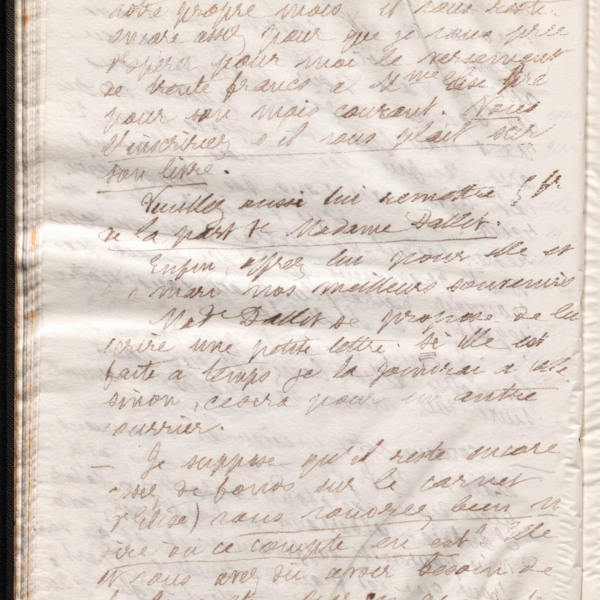 votre propre mois il vous reste
encore assez pour que je vous prie
d'opérer pour moi le versement
de trente francs a Mme Elise
pour son mois courant. Vous
l'inscrirez s'il vous plait sur
son livre.
Veuillez aussi lui remettre 5 fr
de la part de Madame Dallet.
Enfin, offrez lui pour elle et
mari nos meilleurs souvenirs
Made Dallet se propose de lui
écrire une petite lettre. Si elle est
faite a temps je la joindrai à
sinon, ce sera pour un autre
courrier.
— Je suppose qu'il reste encore
assez de fonds sur le carnet
d'Elise) vous voudrez bien m
ire où ce compte en est. Elle
vous avez dû avoir besoin de